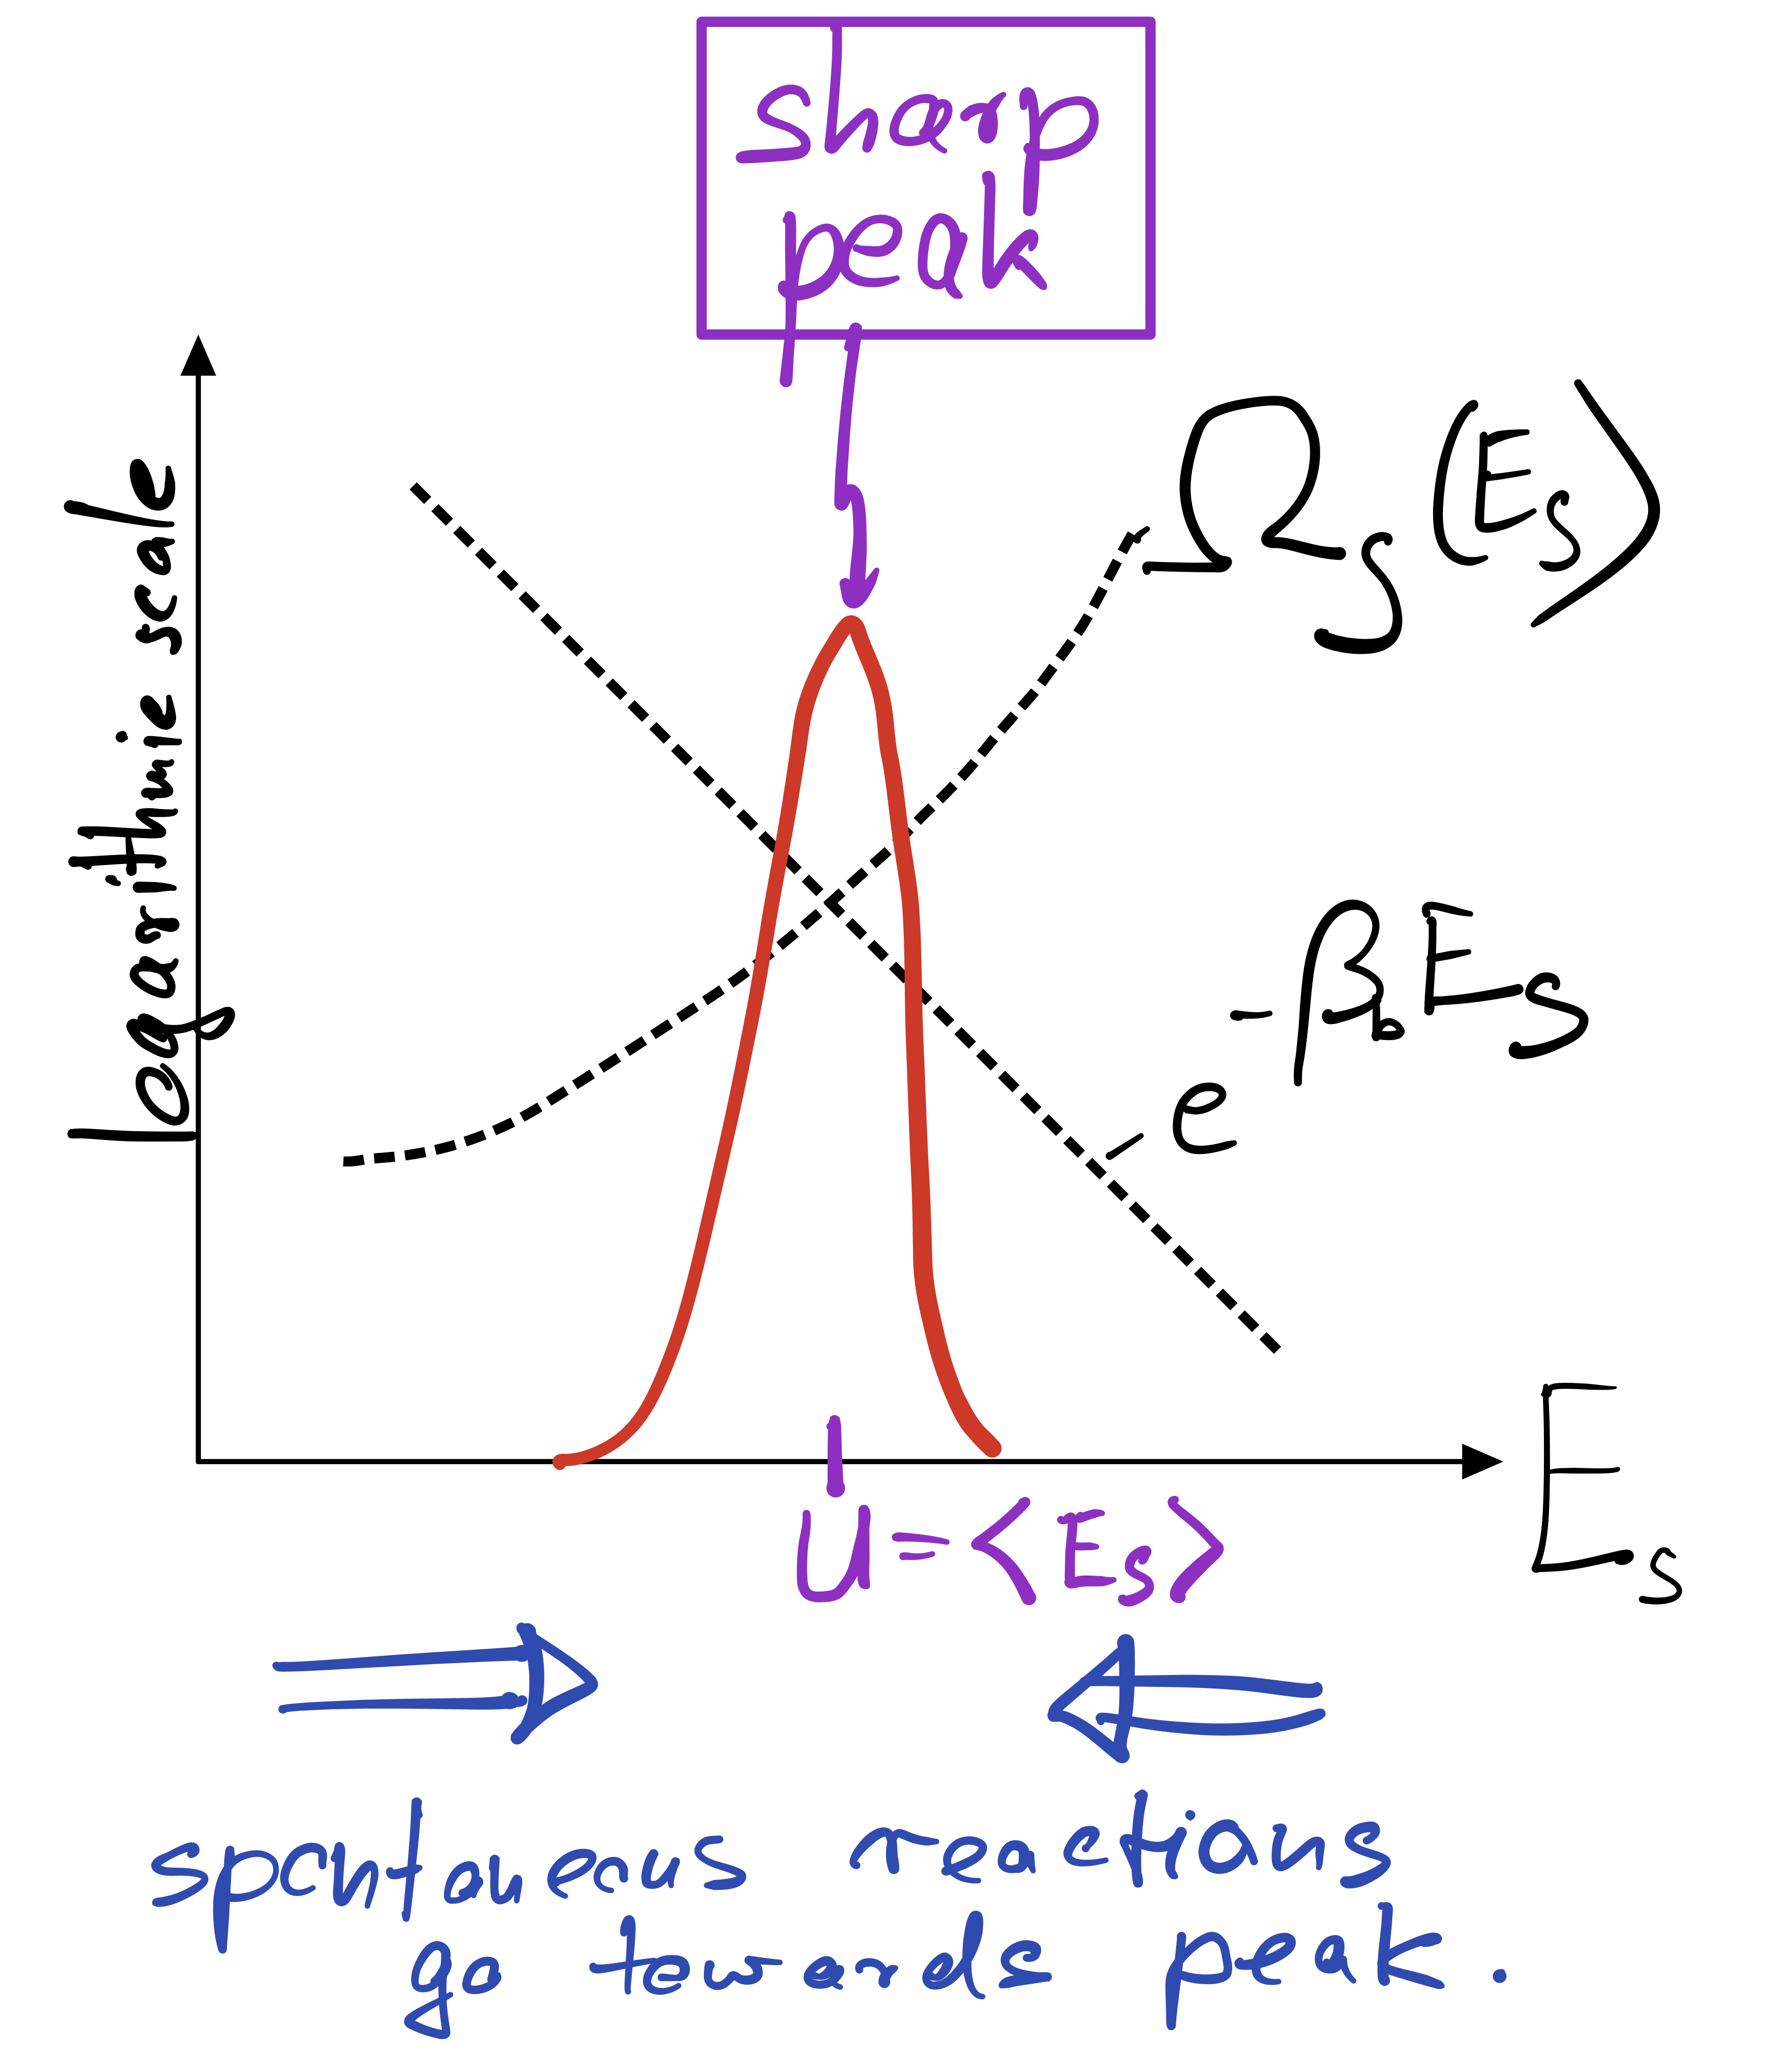 sharp
peak
Logarithmic scale
Ω_S(E_S)
e^{-β_b E_S}
E_S
U=<E_S>
spontaneous reactions
go towards peak.